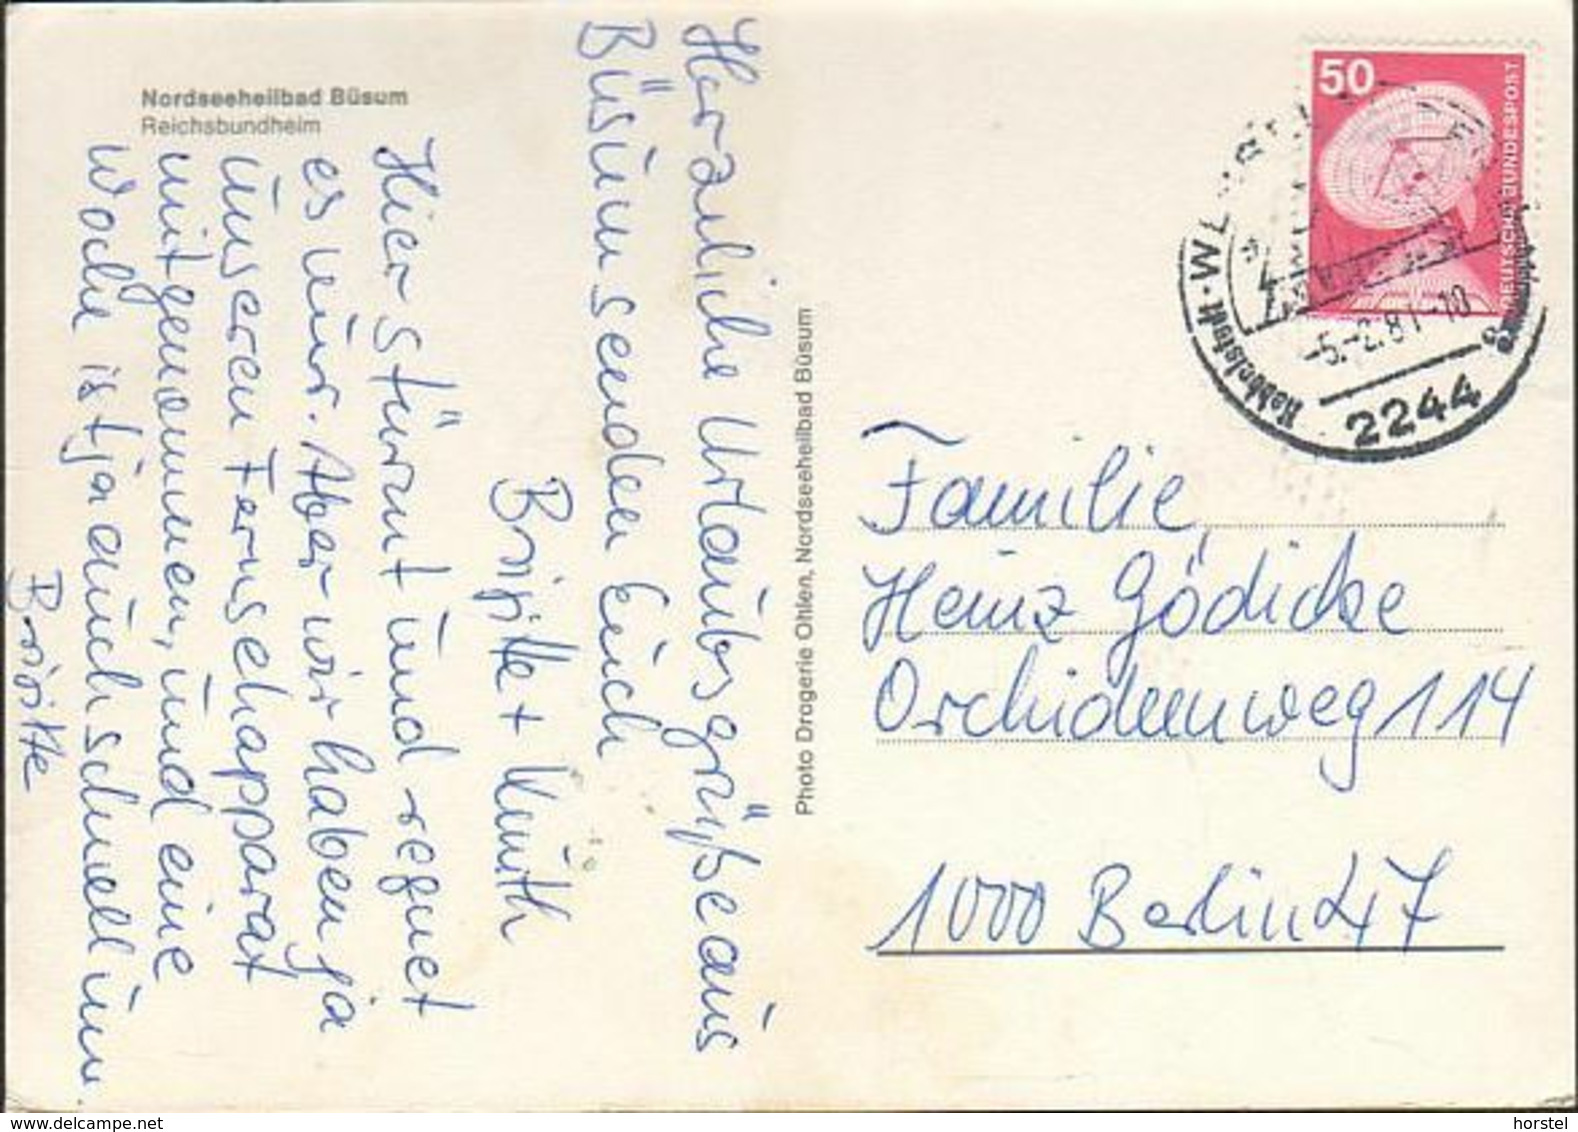 Nordseeheilbad Büsum
Reichsbundheim
Herzliche Urlaubsgrüße aus
Büsum senden Euch
Brigitte + Knuth
Hier stürmt und regnet
es nur. Aber wir haben ja
unseren Fernsehapparat
mitgenommen, und eine
Woche ist ja auch schnell um
Brigitte
Photo Drogerie Ohlen, Nordseeheilbad Büsum
50
DEUTSCHE BUNDESPOST
-5.-2.81-10
2244
Familie
Heinz Gödicke
Orchideenweg 114
1000 Berlin 47
delcampe.net
horstel